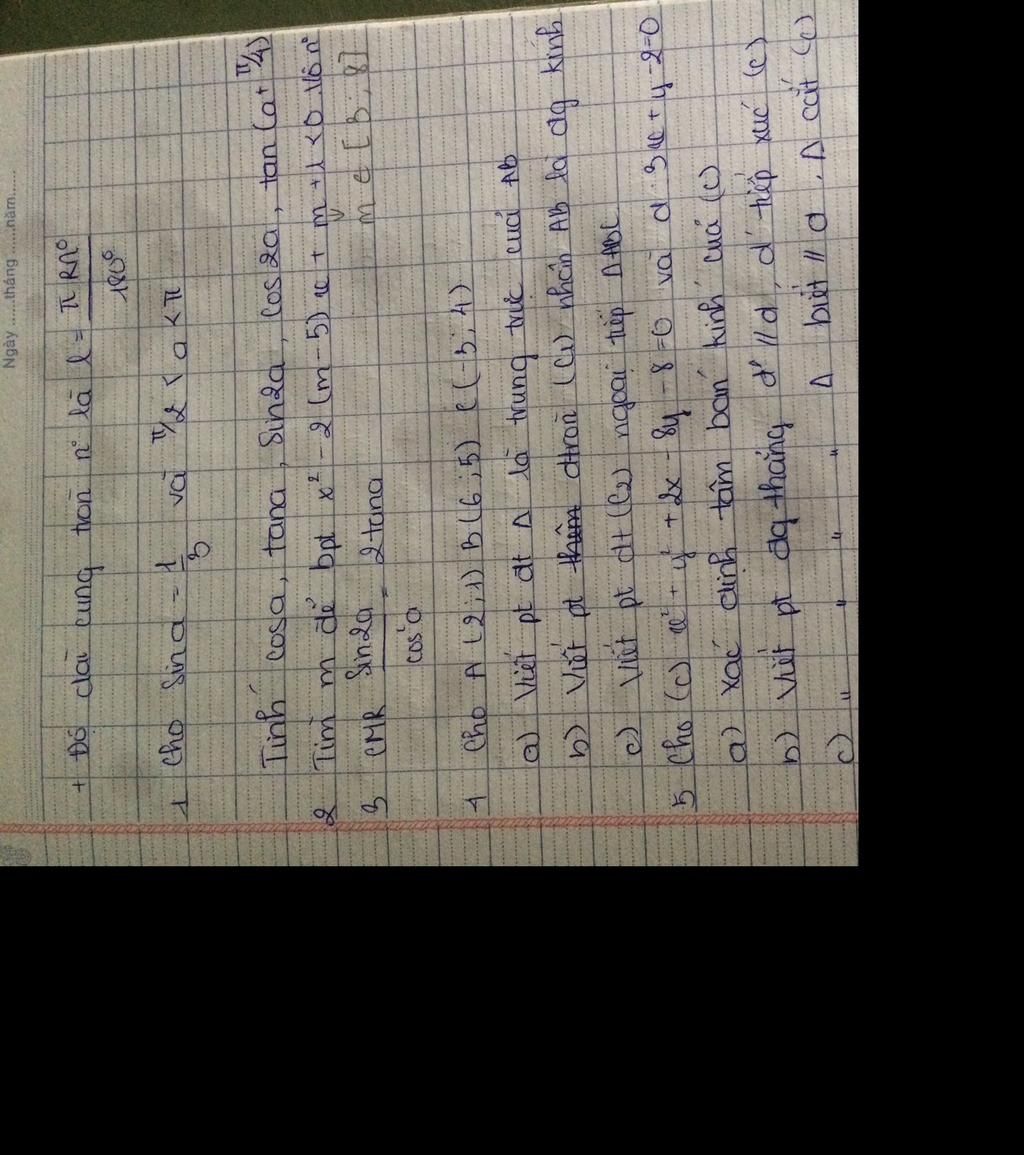 Ngày .....tháng .....năm.....
+ Độ dài cung tròn n° là l = πRn° / 180°
1 Cho sin a = 1/3 và π/2 < a < π
Tính cosa, tana, sin2a, cos2a, tan(a+π/4)
2 Tìm m để bpt x² - 2(m-5)x + m+1 <0 Vô n°
m ∈ [3; 8]
3 CMR sin2a / cos²a = 2tana
4 Cho A(2;1) B(6;5) C(-3;4)
a) Viết pt dt Δ là trung trực của AB
b) Viết pt dtròn (C1) nhận AB là đg kính
c) Viết pt dt (C2) ngoại tiếp ΔABC
5 Cho (C) x² + y² + 2x - 8y - 8 = 0 và d: 3x + y - 2=0
a) Xác định tâm bán kính của (C)
b) Viết pt đg thẳng d' // d, d' tiếp xúc (C)
c) " " " " Δ biết // d, Δ cắt (C)